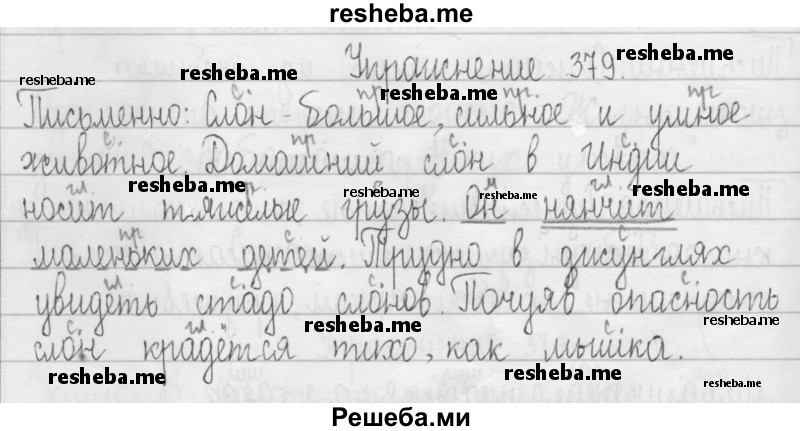 resheba.me
Упражнение 379.
resheba.me
resheba.me resheba.me
resheba.me
с. пр. пр. пр.
Письменно: Слон - большое, сильное и умное
с. пр. с. с.
животное. Домашний слон в Индии
resheba.me resheba.me resheba.me resheba.me
гл. пр. с. м. гл.
носит тяжёлые грузы. Он нянчит
пр. с. с.
маленьких детей. Трудно в джунглях
гл. с. с. с.
увидеть стадо слонов. Почуяв опасность
resheba.me resheba.me
с. гл. с.
слон крадётся тихо, как мышка.
resheba.me resheba.me resheba.me
Решеба.ми